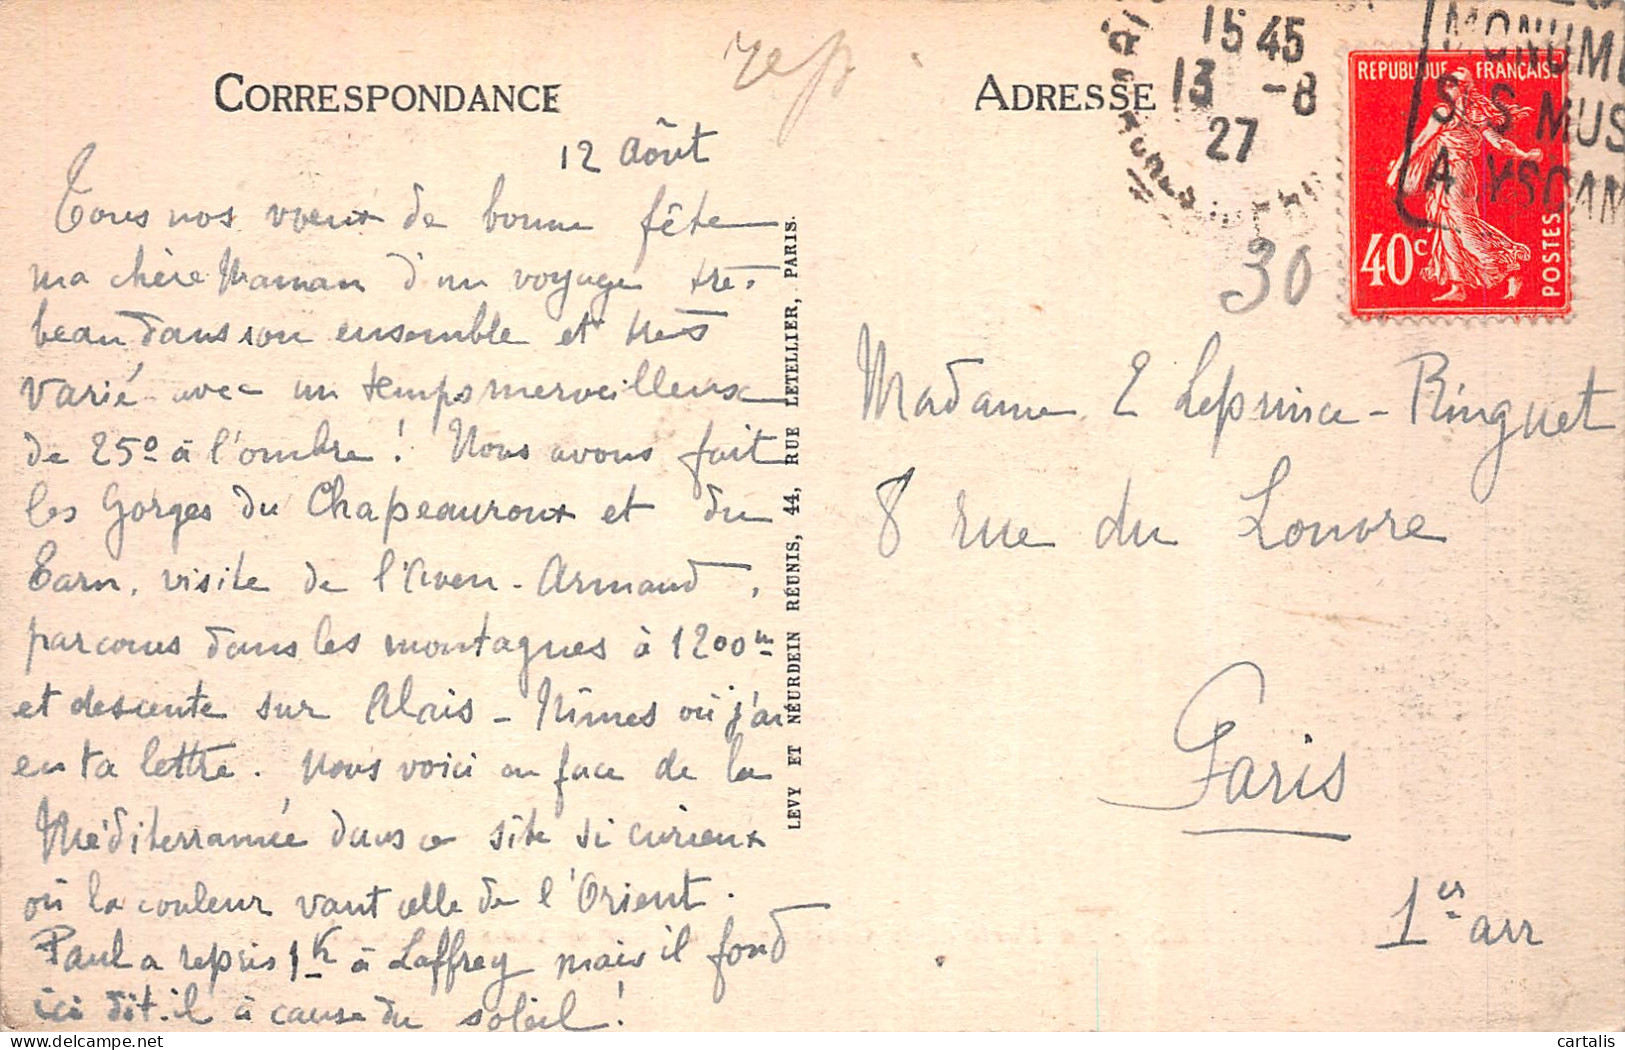 CORRESPONDANCE
rep.
12 Août
Tous nos vœux de bonne fête
ma chère Maman d'un voyage très
beau dans son ensemble et très
varié avec un temps merveilleux
de 25° à l'ombre ! Nous avons fait
les Gorges du Chapeauroux et du
Tarn, visite de l'Aven-Armand,
parcours dans les montagnes à 1200m
et descente sur Alais - Nîmes où j'ai
eu ta lettre. Nous voici en face de la
Méditerranée dans ce site si curieux
où la couleur vaut celle de l'Orient.
Paul a repris 1K à Laffrey mais il fond
ici dit-il à cause du soleil !
LEVY ET NEURDEIN RÉUNIS, 44, RUE LETELLIER, PARIS.
ADRESSE
15 45
13 -8
27
MONUME
SES MUS
A YSCAM
REPUBLIQUE FRANÇAISE
40c
POSTES
30
Madame E Leprince-Ringuet
8 rue du Louvre
Paris
1er arr
cartalis
delcampe.net